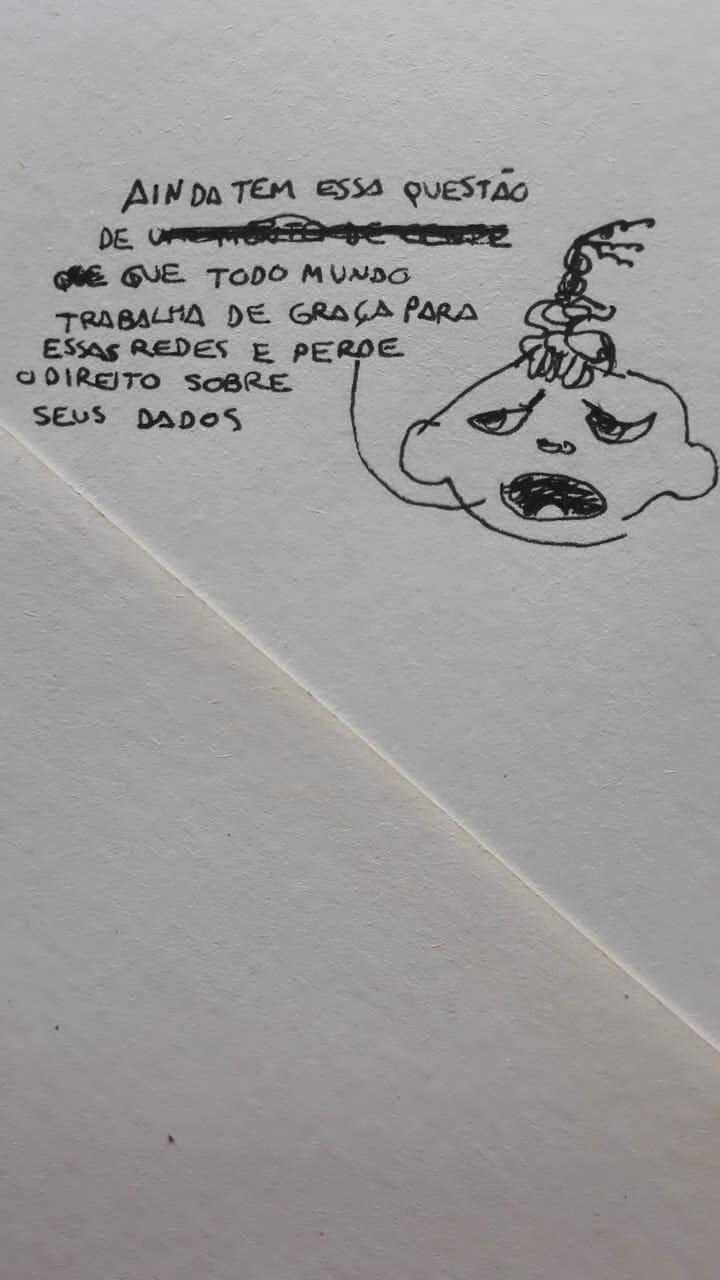 AINDA TEM ESSA QUESTÃO
DE
QUE TODO MUNDO
TRABALHA DE GRAÇA PARA
ESSAS REDES E PERDE
O DIREITO SOBRE
SEUS DADOS